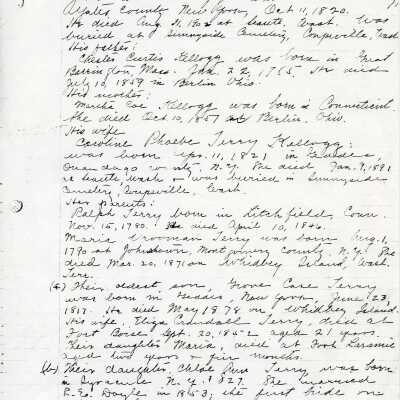 Yates County New York, Oct 11, 1820.
He died Aug 31, at Seattle, Wash. was
buried at Sunnyside Cemetery, Coupeville, Wash
His father:
Chester Curtis Kellogg was born in Great
Barrington, Mass. Jan. 22, 1785 He died
July 10, 1859 in Berlin Ohio.
His mother:
Martha Coe Kellogg was born in Connecticut
She died Oct 10, 1857 at Berlin, Ohio.
His wife
Caroline Phoebe Terry Kellogg:
was born 11, 1821 in Geddes,
Onandago county, N.Y. She died Jan. 9, 1891
Seattle, Wash & was buried in Sunnyside
Cemetery, Coupeville, Wash.
Her parents:
Ralph Terry born in Litchfield, Conn.
Nov. 15, 1780. He died April 10, 1846.
Maria Vrooman Terry was born Aug. 1,
1790 at Johnstown, Montgomery County, N.Y. She
died Mar. 20, 1871 on Whidbey Island, Wash.
Terr.
(a) Their oldest son, Grove Case Terry
was born in Geddes, New York, June 23,
1817. He died May 1878 on Whidbey Island.
His wife, Eliza Crandall Terry, died at
Fort Boise Sept. 20, 1852 aged 21 years.
Their daughter Maria, died at Fort Laramie
aged two years & months.
(b) Their daughter, Chloe Ann Terry, was born
in Syracuse N.Y. 1827. She married
R. Doyle in 1853; the first bride on